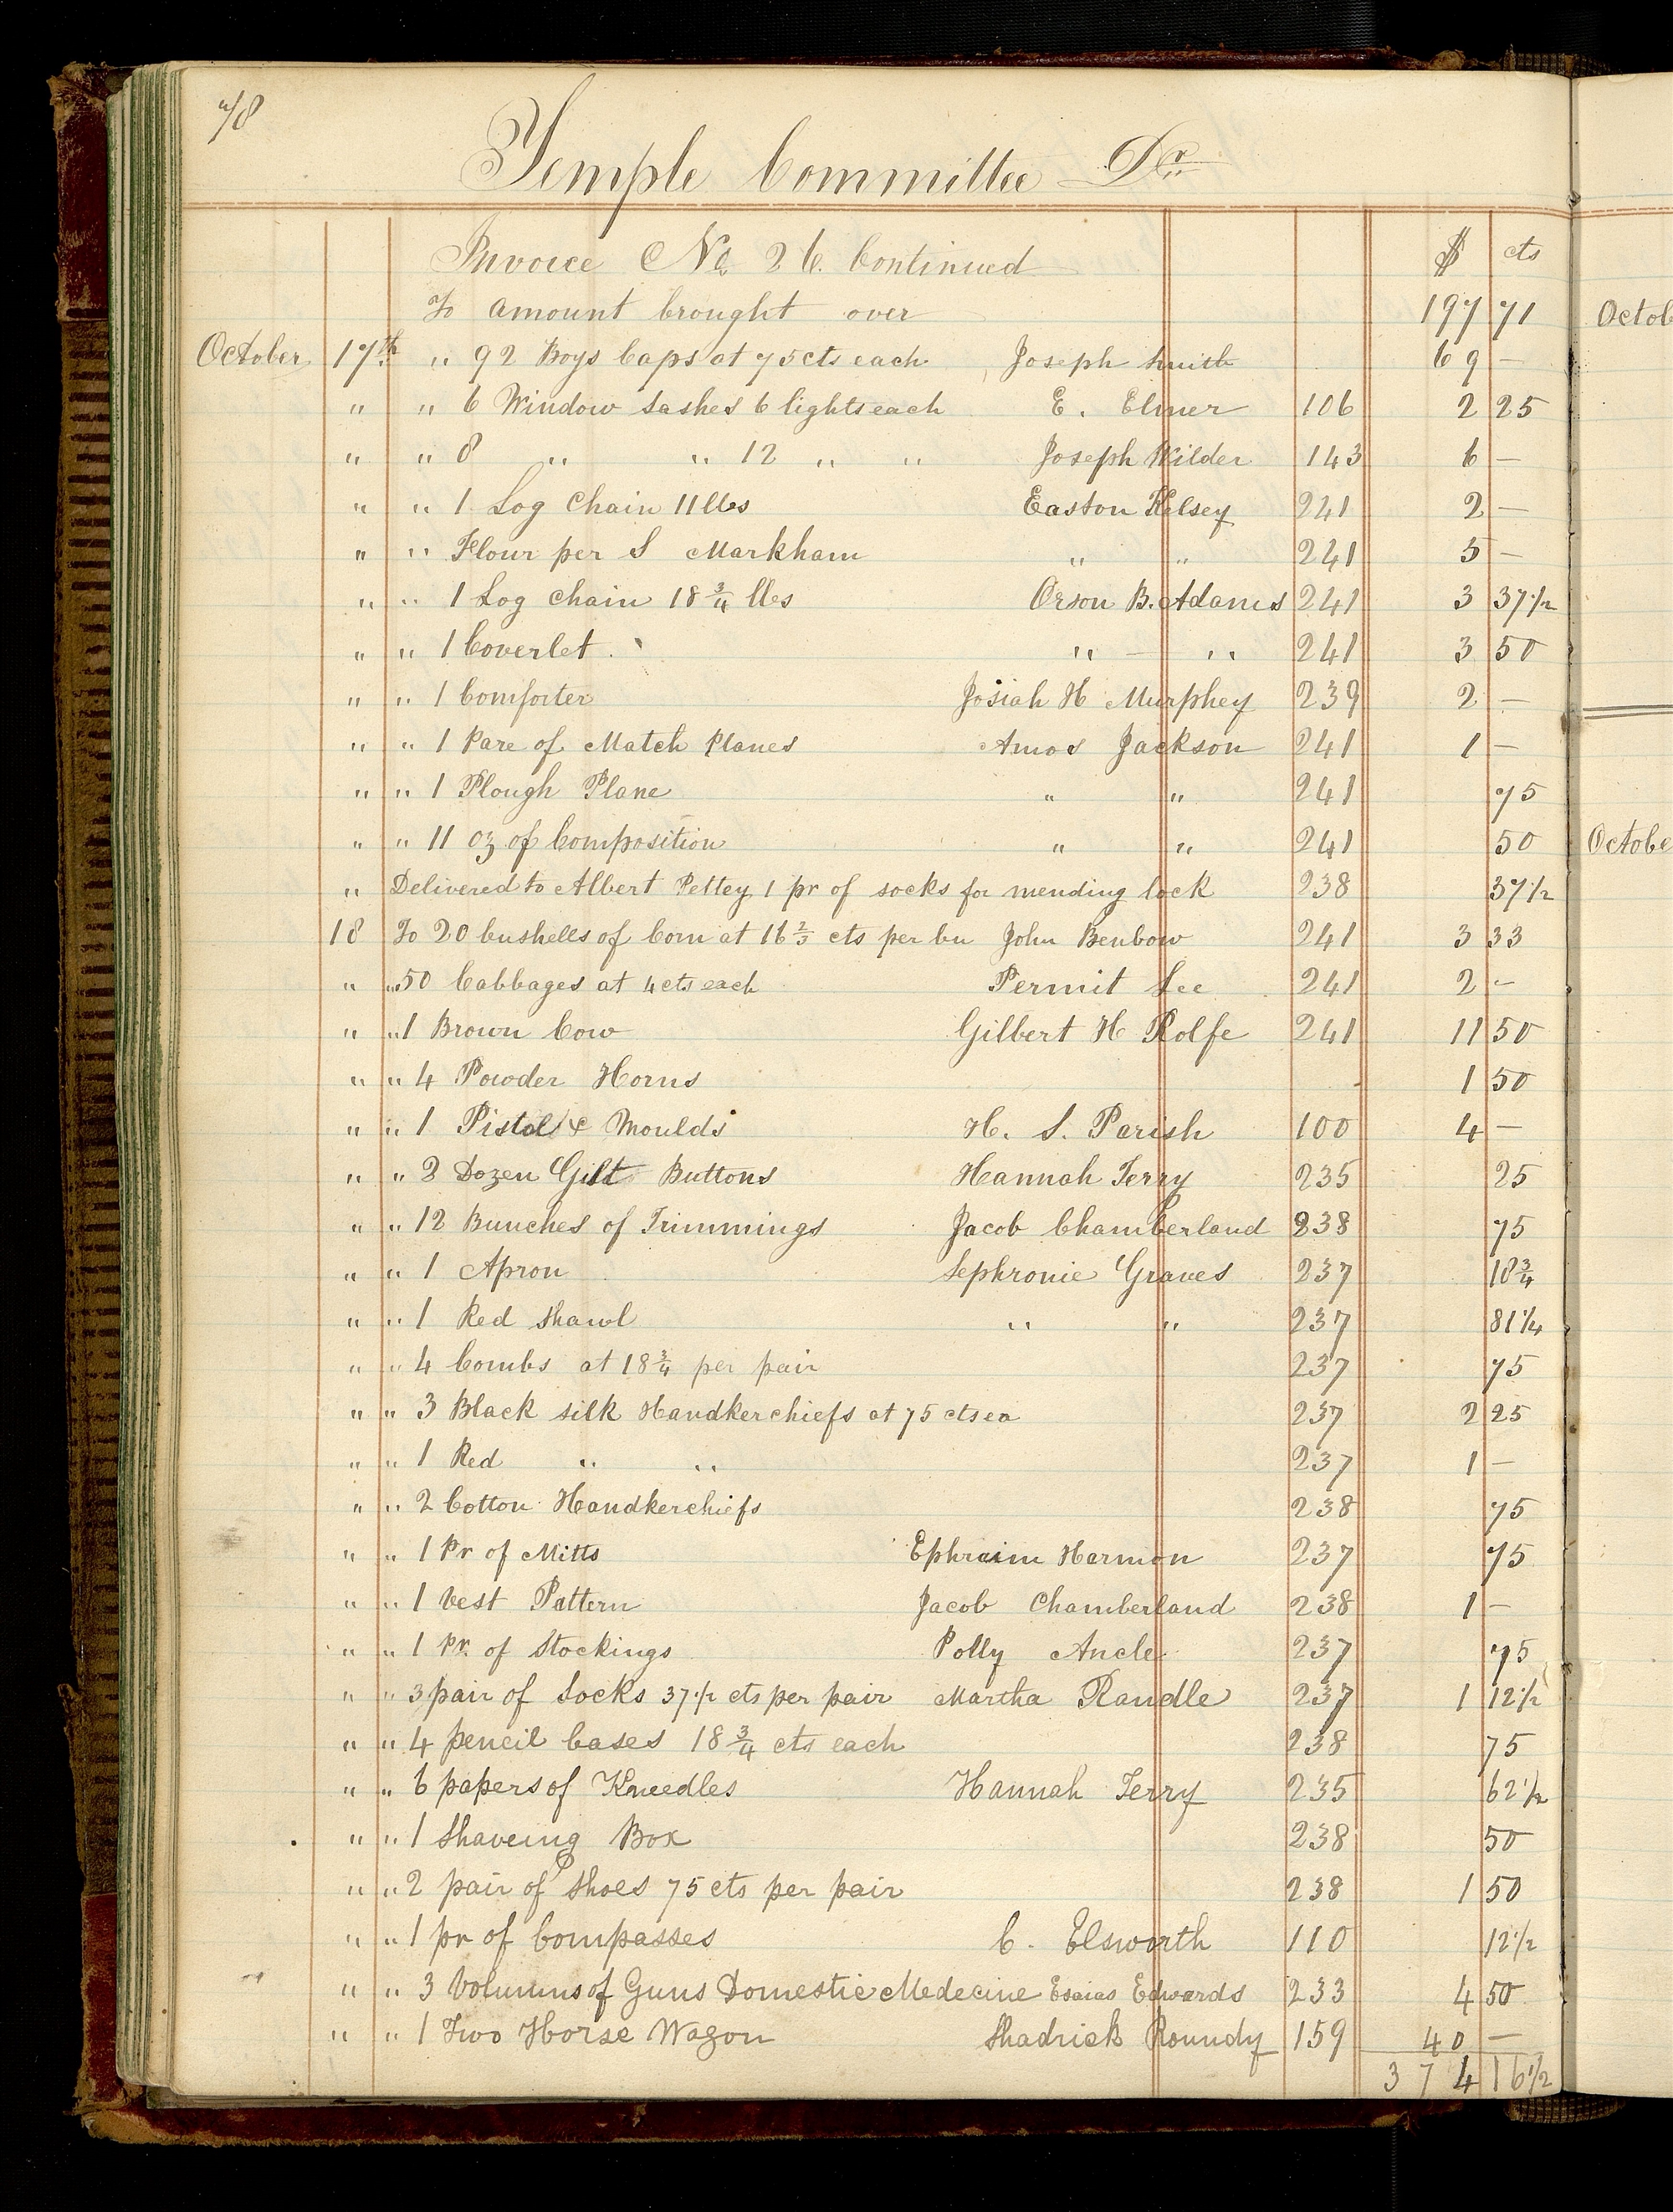 78
Temple Committee Dr
Invoice No 26. Continued $ cts
To amount brought over 197 71
October 17th " 92 Boys Caps at 75 cts each Joseph Smith 69 —
" " 6 Window Sashes 6 lights each E. Elmer 106 2 25
" " 8 " " 12 " " Joseph Wilder 143 6 —
" " 1 Log Chain 11 lbs Easton Kelsey 241 2 —
" " Flour per S Markham " " 241 5 —
" " 1 Log Chain 18 3/4 lbs Orson B. Adams 241 3 37 1/2
" " 1 Coverlet " — " 241 3 50
" " 1 Comforter Josiah H Murphey 239 2 —
" " 1 Pare of Match Planes Amos Jackson 241 1 —
" " 1 Plough Plane " " 241 75
" " 11 oz of Composition " " 241 50
" Delivered to Albert Pettey 1 pr of socks for mending lock 238 37 1/2
18 To 20 bushells of Corn at 16 2/3 cts per bu John Benbow 241 3 33
" " 50 Cabbages at 4 cts each Permit Lee 241 2 —
" " 1 Brown Cow Gilbert H Rolfe 241 11 50
" " 4 Powder Horns 1 50
" " 1 Pistol & Moulds H. S. Parish 100 4 —
" " 2 Dozen Gilt Buttons Hannah Terry 235 25
" " 12 Bunches of Trimmings Jacob Chamberland 238 75
" " 1 Apron Sephronie Graves 237 18 3/4
" " 1 Red Shawl " " 237 81 1/4
" " 4 Combs at 18 3/4 per pair 237 75
" " 3 Black silk Handkerchiefs at 75 cts ea 237 2 25
" " 1 Red " " 237 1 —
" " 2 Cotton Handkerchiefs 238 75
" " 1 Pr of Mitts Ephraim Harmon 237 75
" " 1 Vest Pattern Jacob Chamberland 238 1 —
" " 1 Pr. of Stockings Polly Ancle 237 75
" " 3 pair of Socks 37 1/2 cts per pair Martha Randle 237 1 12 1/2
" " 4 pencil Cases 18 3/4 cts each 238 75
" " 6 papers of Kneedles Hannah Terry 235 62 1/2
" " 1 Shaveing Box 238 50
" " 2 pair of Shoes 75 cts per pair 238 1 50
" " 1 pr of Compasses C. Elsworth 110 12 1/2
" " 3 Volumns of Guns Domestic Medecine Esaias Edwards 233 4 50
" " 1 Two Horse Wagon Shadrick Roundy 159 40 —
374 16 1/2
Octob
Octobe